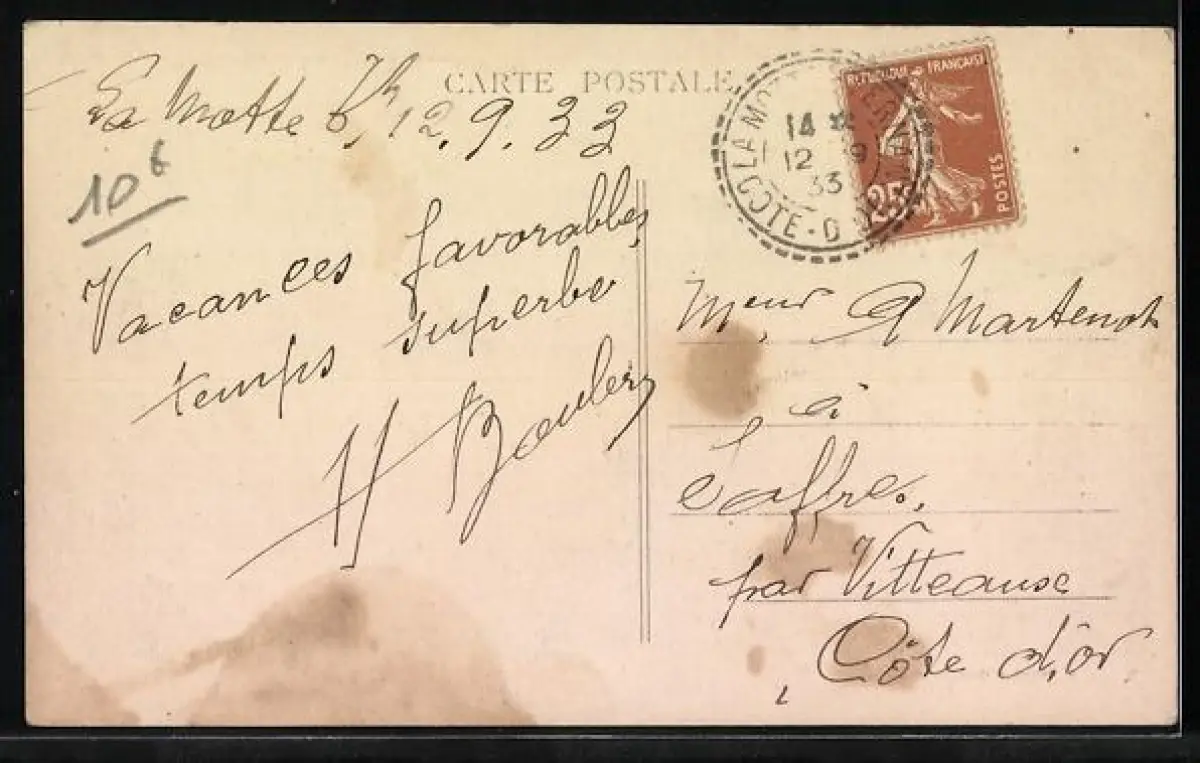 CARTE POSTALE
La Motte Th, 12.9.33
10
Vacances favorables
temps superbe
H
RÉPUBLIQUE FRANÇAISE
POSTES
25c
LA MOTTE
14
12 9
33
COTE-D'OR
Meur A Martenot
à
Saffres.
par Vitteause
Côte d'or